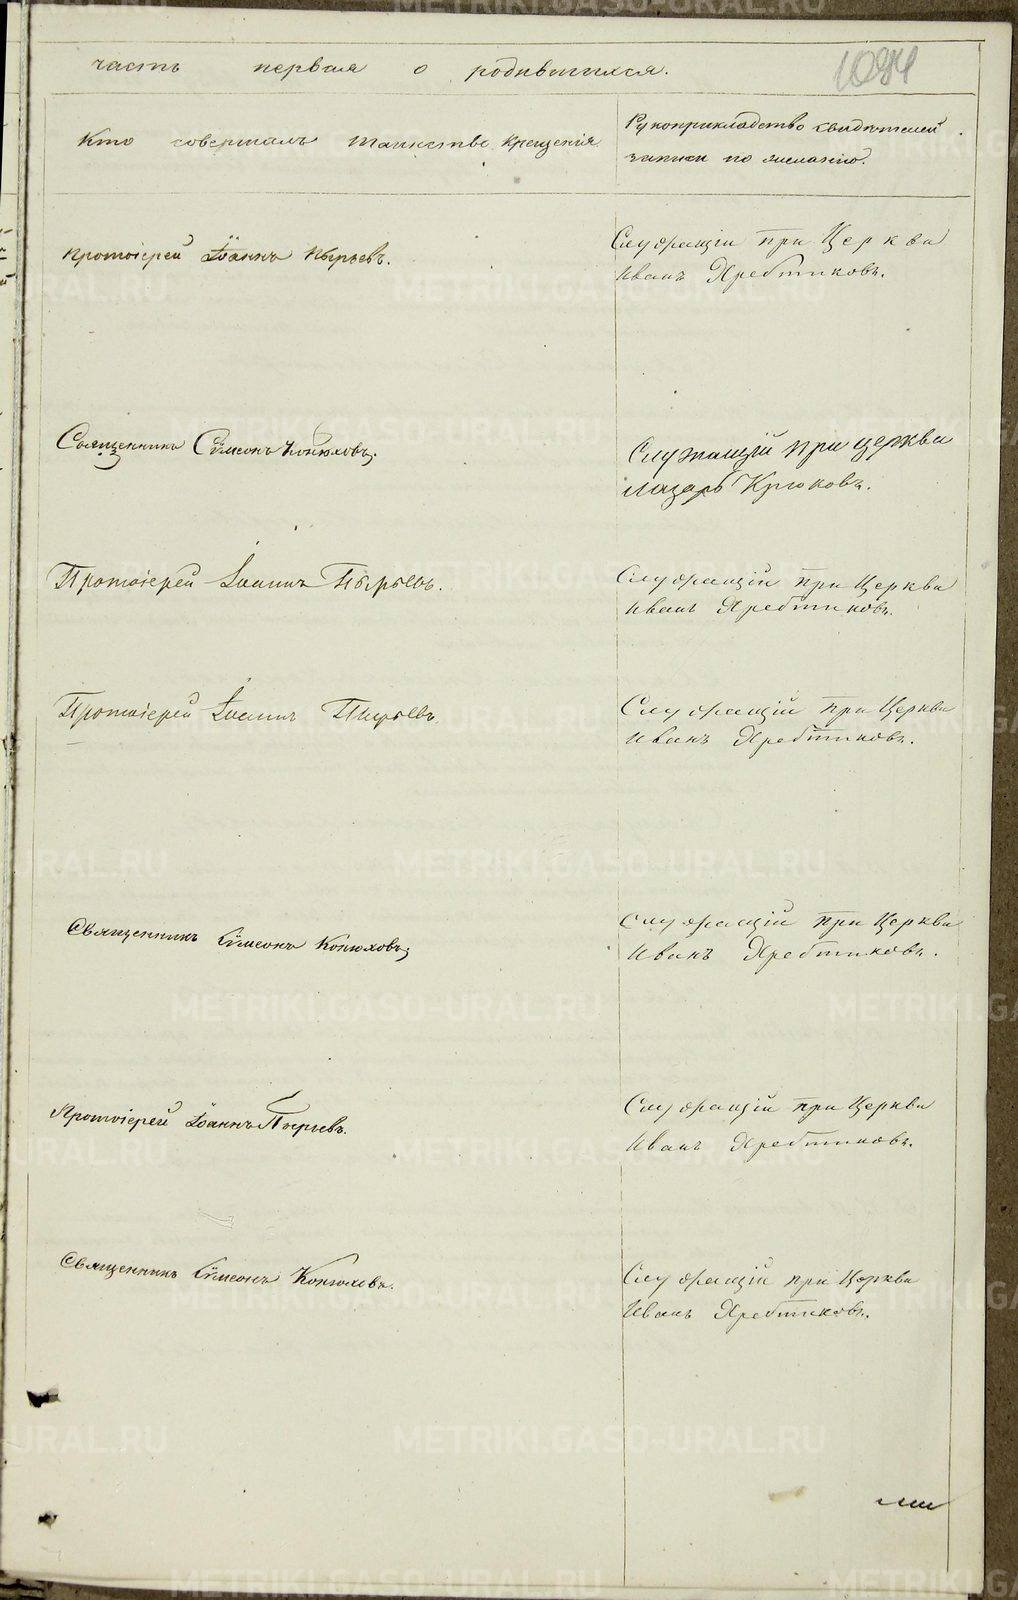 часть первая о родившихся.
1084
Кто совершалъ таинство крещенія
Рукоприкладство свидѣтелей
записи по желанію.
Протоіерей Іоаннъ Пырьевъ.
Служащій при Церкви
Иванъ Хребтиковъ.
Священникъ Сѵмеонъ Конюховъ.
Служащій при церкви
Лазарь Крюковъ.
Протоіерей Іоаннъ Пырьевъ.
Служащій при Церкви
Иванъ Хребтиковъ.
Протоіерей Іоаннъ Пырьевъ.
Служащій при Церкви
Иванъ Хребтиковъ.
Священникъ Сѵмеонъ Конюховъ
Служащій при Церкви
Иванъ Хребтиковъ.
Протоіерей Іоаннъ Пырьевъ.
Служащій при Церкви
Иванъ Хребтиковъ.
Священникъ Сѵмеонъ Конюховъ.
Служащій при Церкви
Иванъ Хребтиковъ.
METRIKI.GASO-URAL.RU